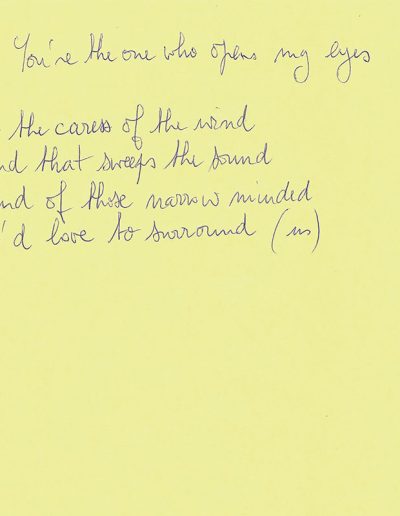 You're the one who opens my eyes
the caress of the wind
nd that sweeps the sound
nd of those narrow minded
'd love to surround (us)